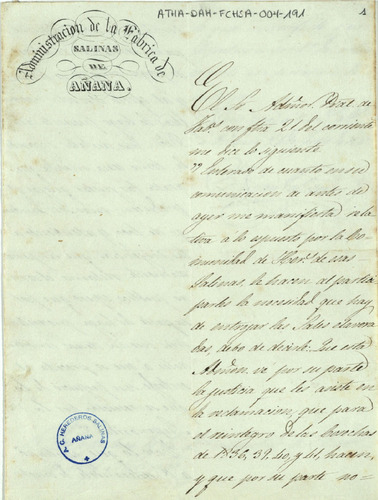 ATHA-DAH-FCHSA-004-191
1
Administracion de la Fábrica de
SALINAS
DE
AÑANA.
El Sr Admor. Pral. de
con fha 21 del corriente
me dice lo siguiente
"Enterado de cuanto en su
comunicacion de antes de
ayer me manifiesta rela
tiva a lo espuesto por la Co
munidad de Hers. de esas
Salinas, la hacen al
partes la necesidad que hay
de entrojar las Sales elavora
das, debo de decirle: Que esta
Admon. ve por su parte
la justicia que les asiste en
la reclamacion, que para
el reintegro de las cosechas
de 1836, 39, 40, y 41, hacen,
y que por su parte no-
A.C. HEREDEROS-SALINAS
AÑANA